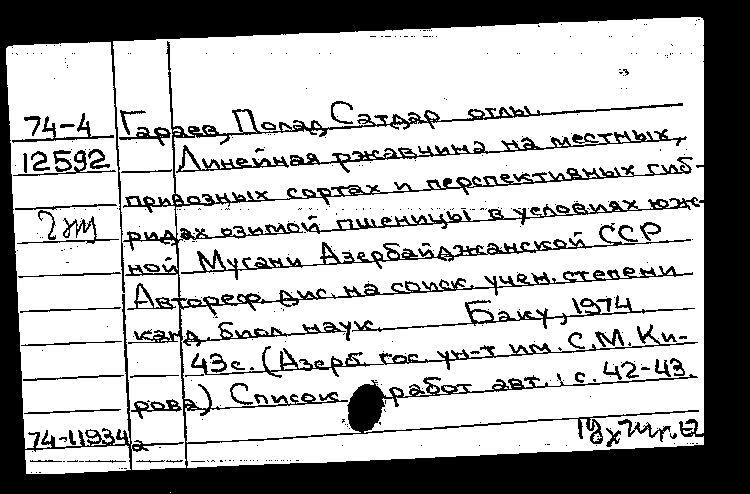 74-4 Гараев, Полад Сатдар оглы.
12592 Линейная ржавчина на местных,
привозных сортах и перспективных гиб-
ридах озимой пшеницы в условиях юж-
ной Мугани Азербайджанской ССР
Автореф. дис. на соиск. учен. степени
канд. биол. наук. Баку, 1974.
43с. (Азерб. гос. ун-т им. С.М. Ки-
рова). Список работ авт.: с. 42-43.
74-11934а